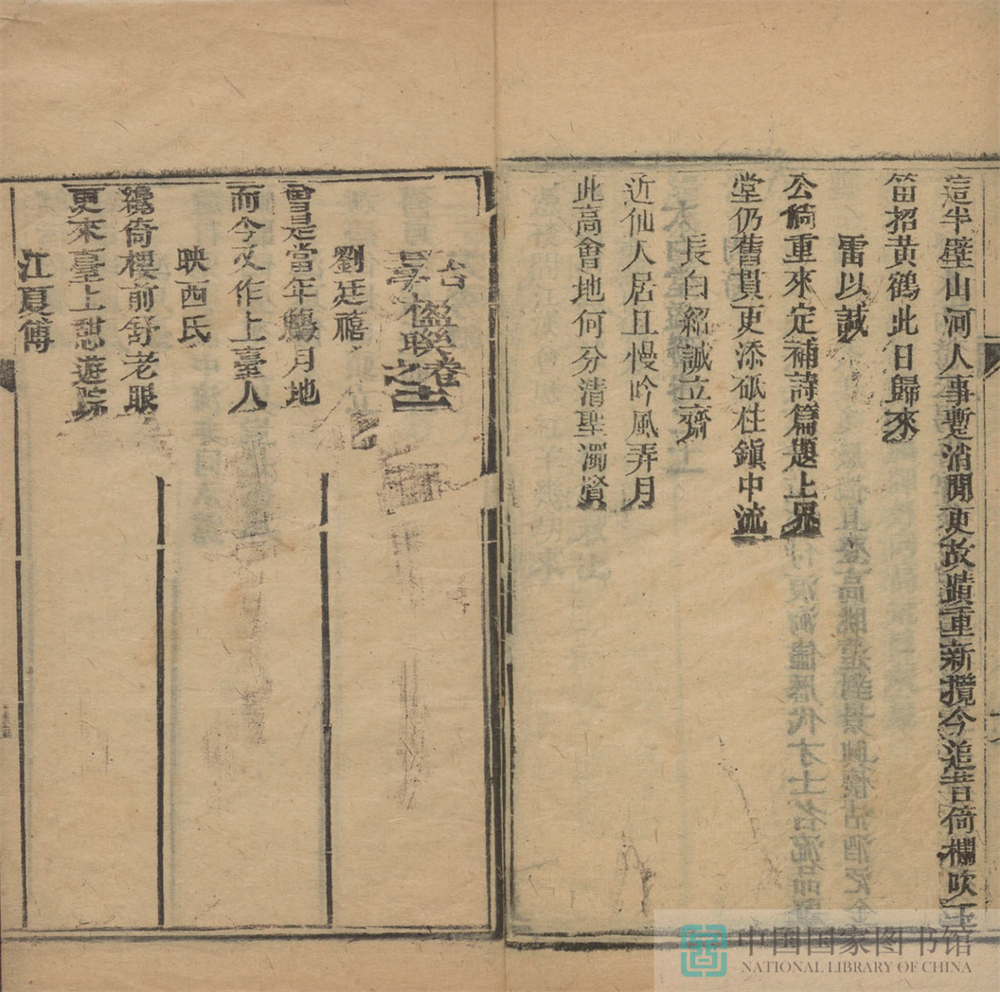 這半壁山河人事蹔消閒更故蹟重新攬今追昔倚欄吹玉
笛招黄鶴此日歸來
雷以諴
公綺重來定補詩篇題上界
堂仍舊貫更添砥柱鎮中流
長白紹諴立齋
近仙人居且慢吟風弄月
此高會地何分清聖濁賢
楹聯卷之十二
劉廷禧
曾是當年鶴月地
而今又作上臺人
映西氏
纔倚樓前舒老眼
更來臺上憇遊踪
江夏傅
中国国家图书馆
NATIONAL LIBRARY OF CHINA